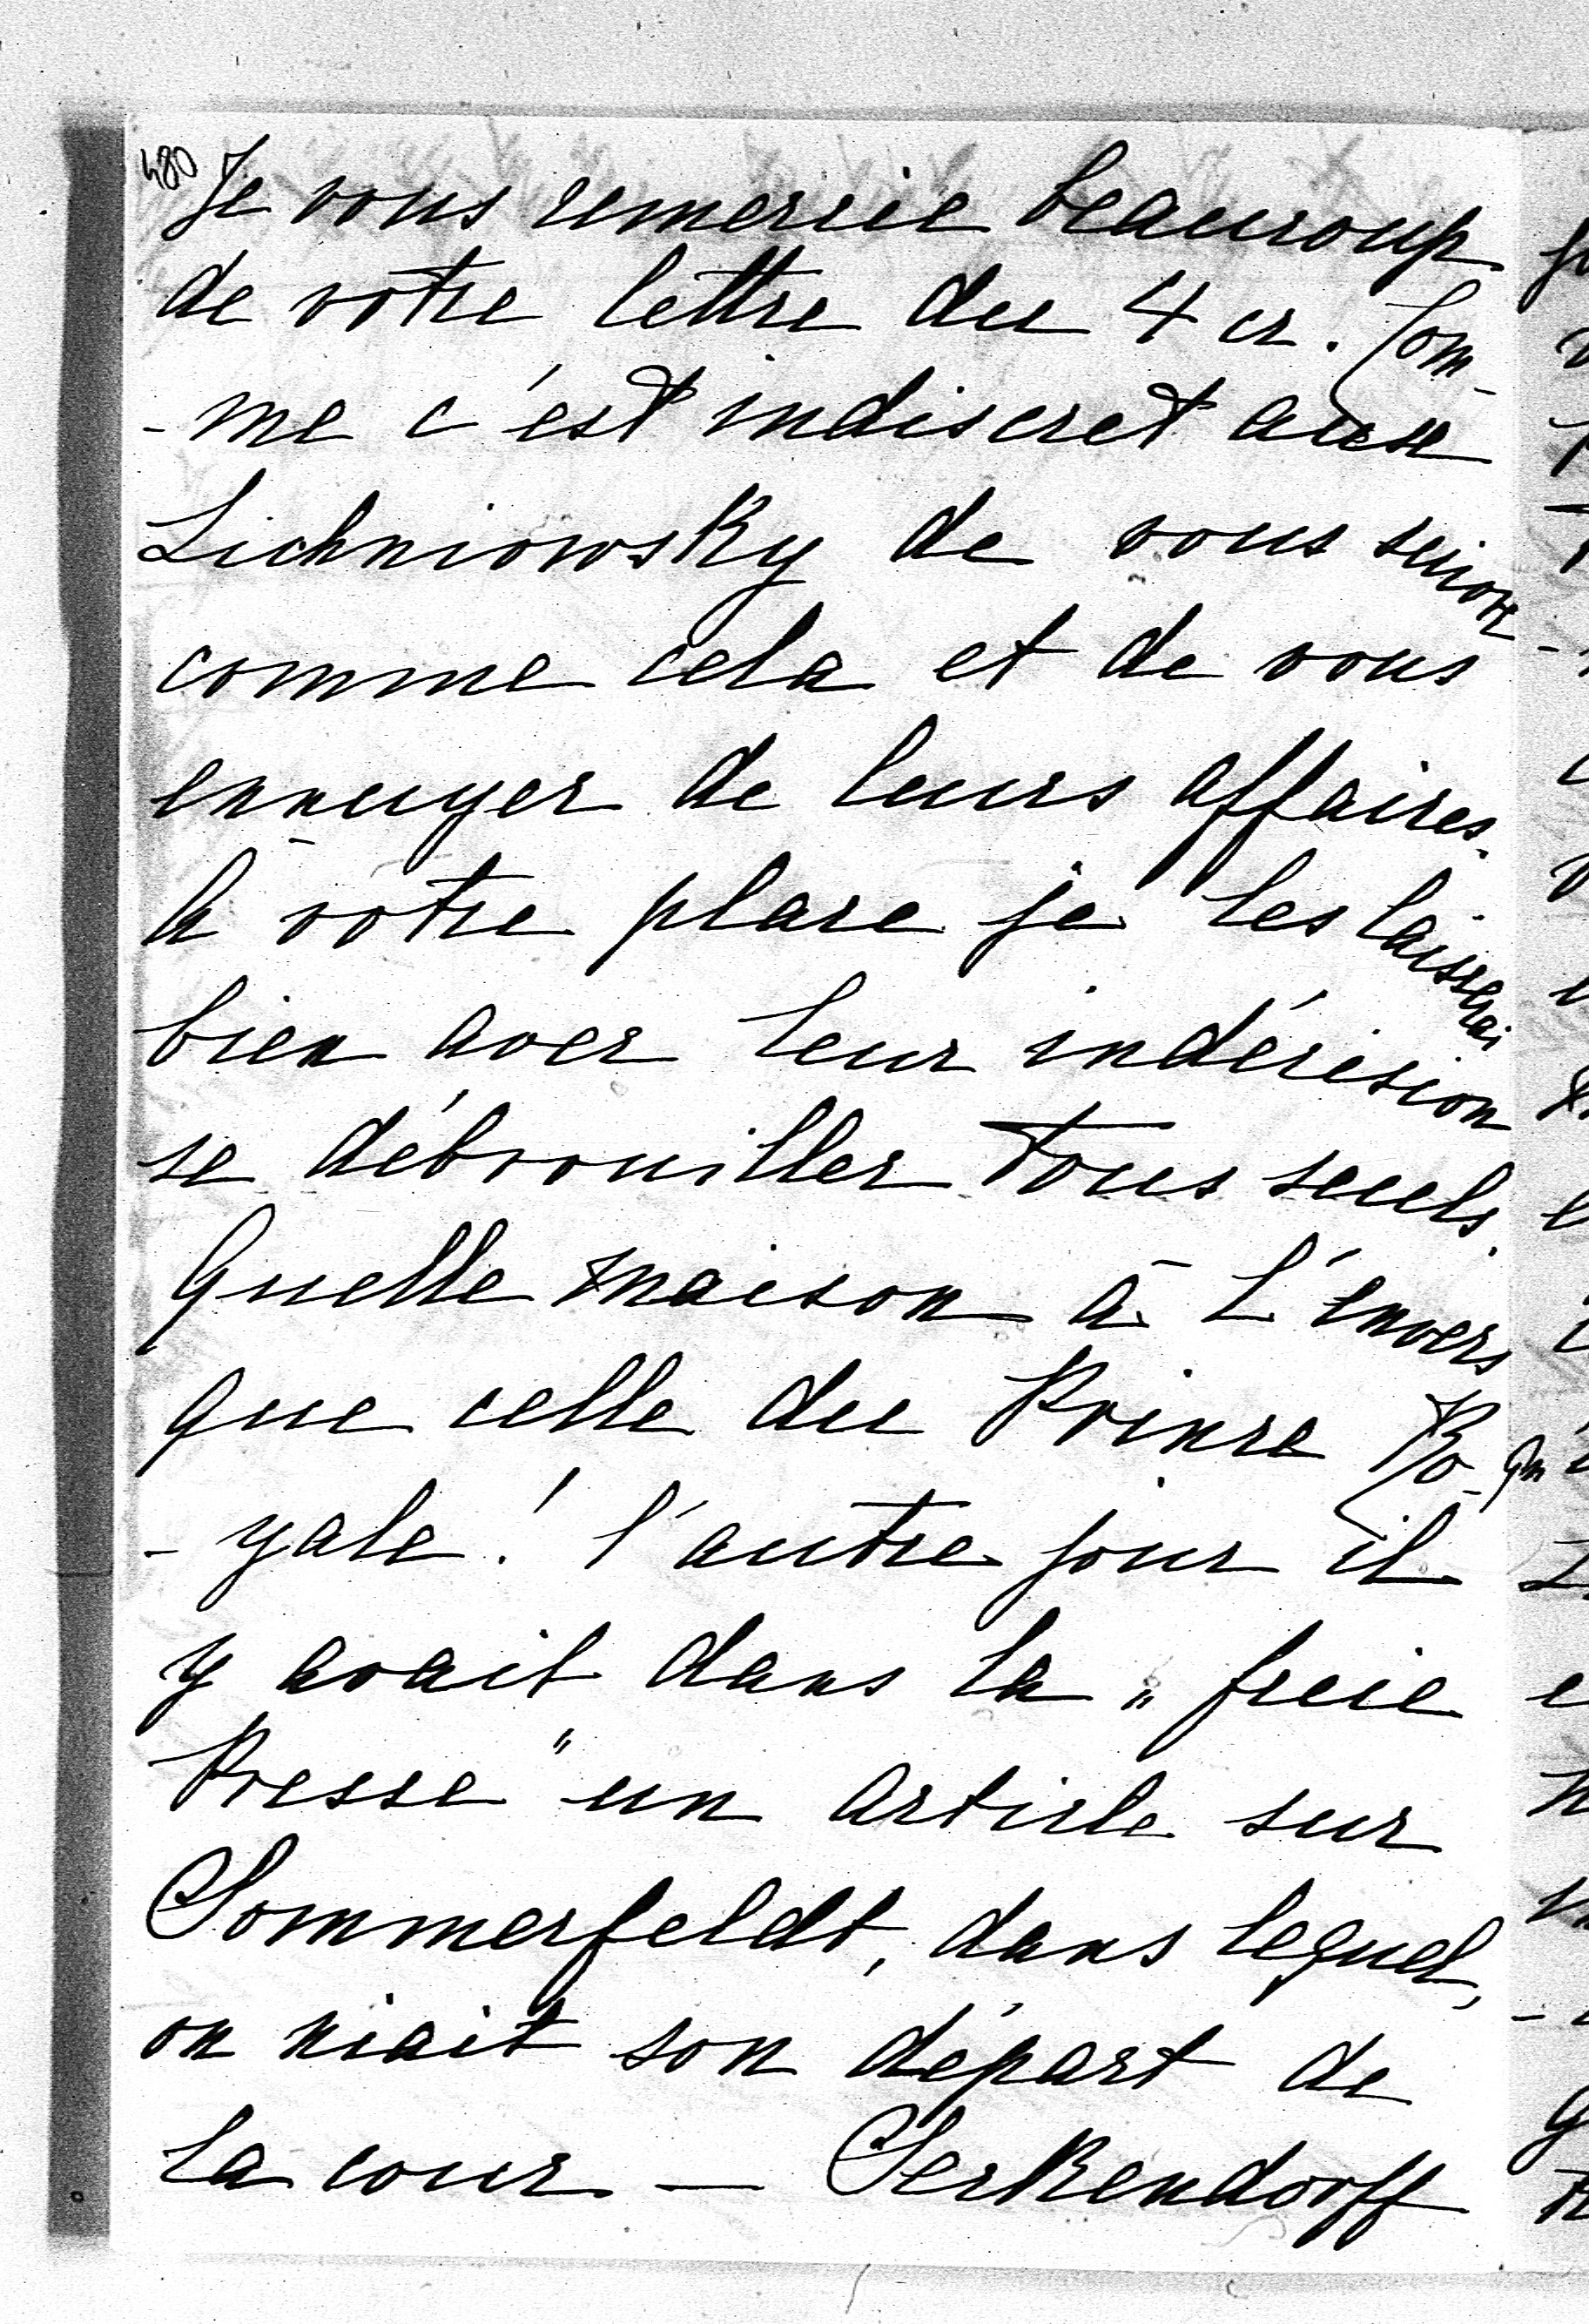 480 Je vous remercie beaucoup
de votre lettre du 4 cr. Com-
-me c'est indiscret aux
Lichniowsky de vous
comme cela et de vous
ennuyer de leurs affaires.
A votre place je les laisserai
bien avec leur indécision
se débrouiller tous seuls.
Quelle maison à l'envers
que celle du Prince Ro-
-yale! l'autre jour il
y avait dans la „freie
Presse" un article sur
Sommerfeldt, dans lequel,
on niait son départ de
la cour — Seckendorff